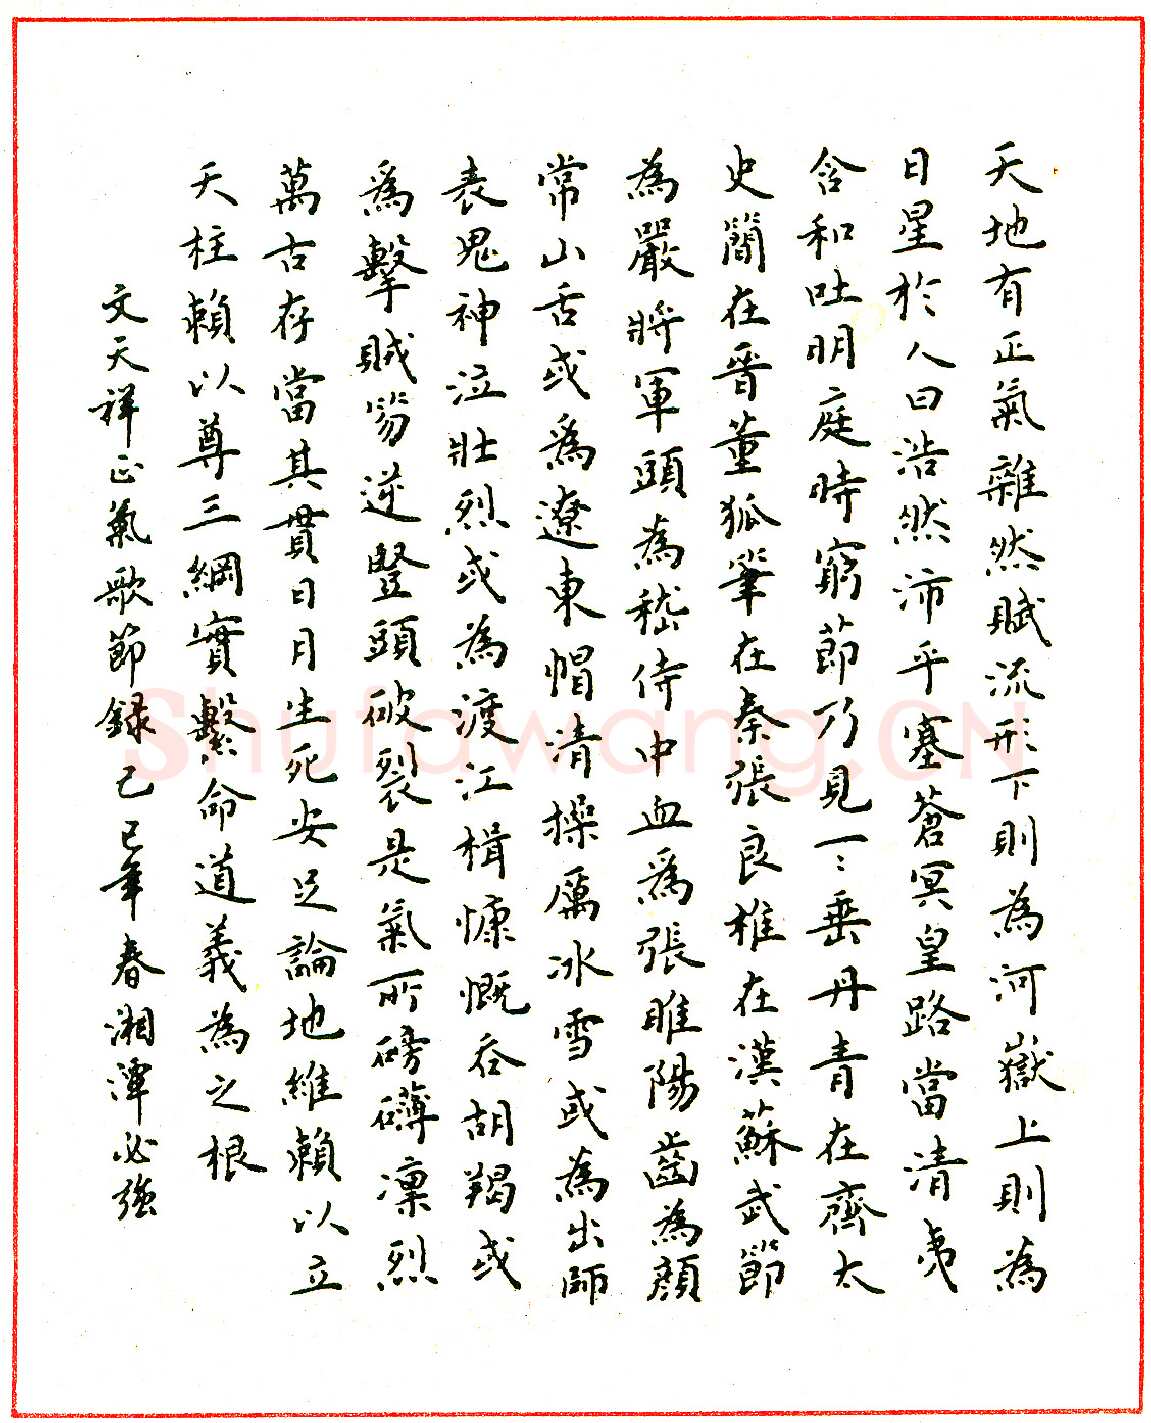 天地有正氣雜然賦流形下則為河嶽上則為
日星於人曰浩然沛乎塞蒼冥皇路當清夷
含和吐明庭時窮節乃見一〻垂丹青在齊太
史簡在晋董狐筆在秦張良椎在漢蘇武節
為嚴將軍頭為嵇侍中血為張睢陽齒為顔
常山舌或為遼東帽清操厲冰雪或為出師
表鬼神泣壯烈或為渡江楫慷慨吞胡羯或
為擊賊笏逆豎頭破裂是氣所磅礴凜烈
萬古存當其貫日月生死安足論地維賴以立
天柱賴以尊三綱實繫命道義為之根
文天祥正氣歌節録己巳年春湘潭必強
Shufawang.CN